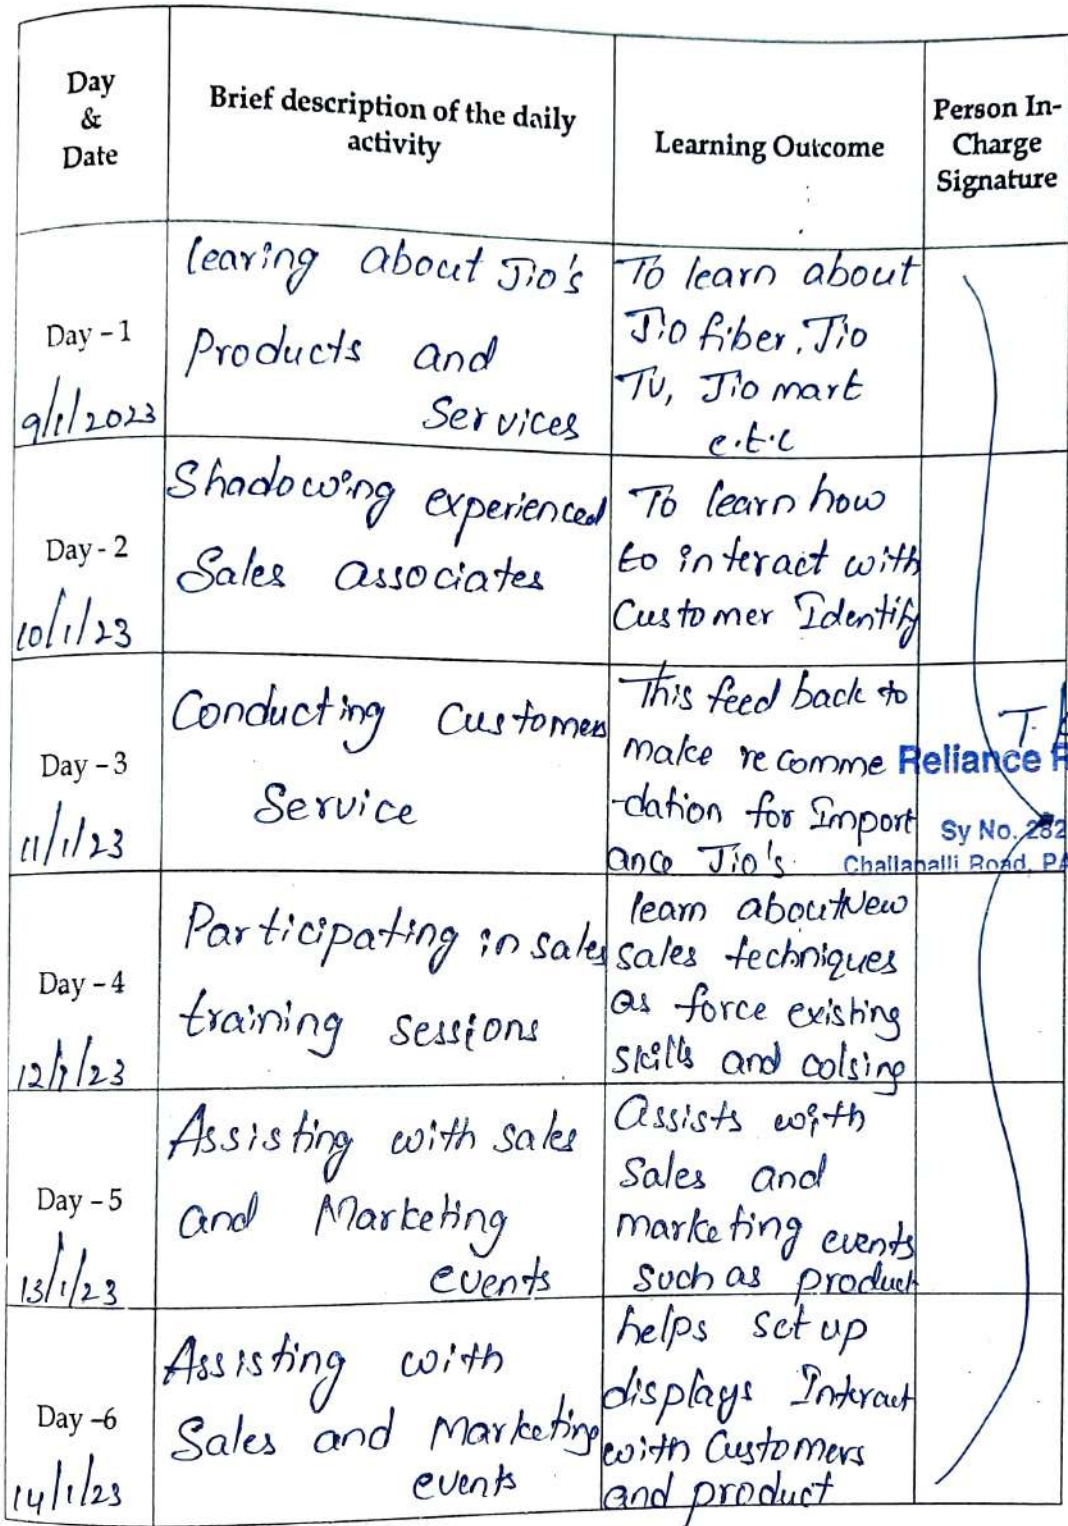 Day
&
Date
Brief description of the daily
activity
Learning Outcome
Person In-
Charge
Signature
Day - 1
9/1/2023
learing about Jio's
Products and
Services
To learn about
Jio fiber, Jio
TV, Jio mart
e.t.c
Day - 2
10/1/23
Shadowing experienced
Sales associates
To learn how
to interact with
Customer Identify
Day - 3
11/1/23
Conducting Customer
Service
This feed back to
make recomme
-dation for Import
ance Jio's
T.
Reliance R
Sy No. 282
Challapalli Road, PA
Day - 4
12/1/23
Participating in sales
training sessions
learn about New
sales techniques
as force existing
skills and colsing
Day - 5
13/1/23
Assisting with sales
and Marketing
events
Assists with
Sales and
marketing events
Such as product
Day -6
14/1/23
Assisting with
Sales and Marketing
events
helps set up
displays Interact
with Customers
and product